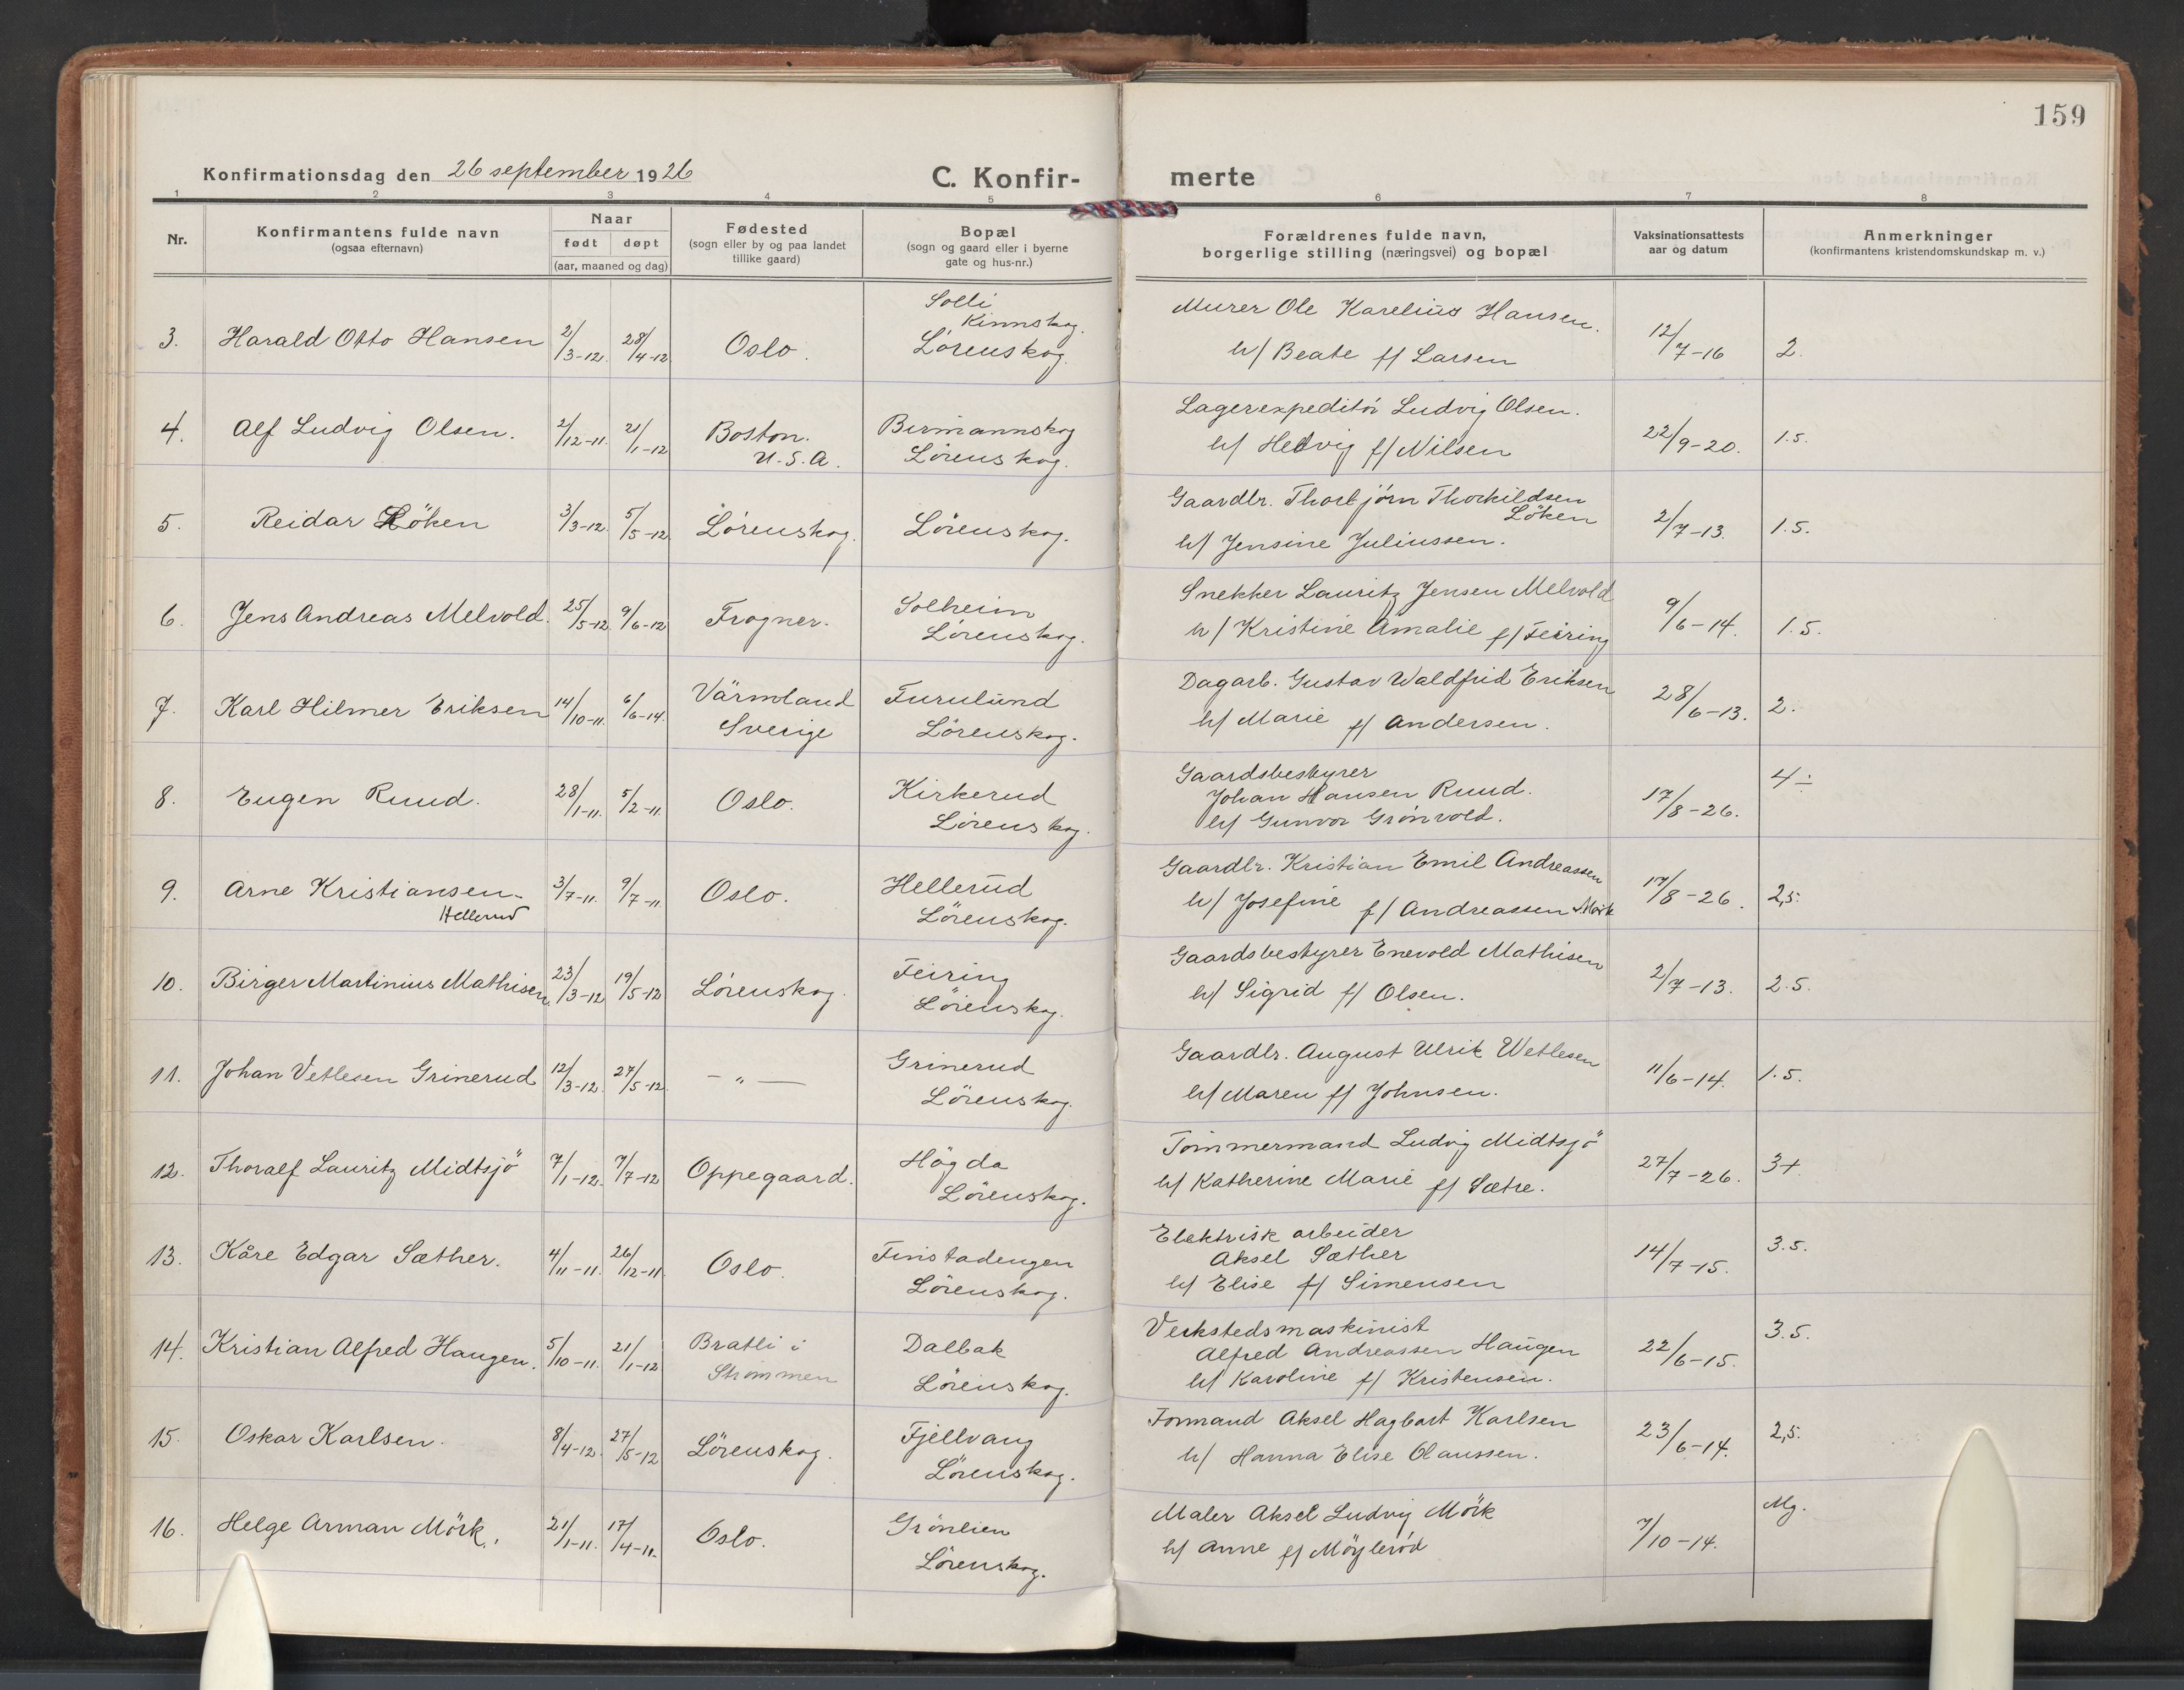 159
Konfirmationsdag den 26 september 1926
C. Konfir- merte
1 2 3 4 5 6 7 8
Nr.
Konfirmantens fulde navn
(ogsaa efternavn)
Naar
født døpt
(aar, maaned og dag)
Fødested
(sogn eller by og paa landet
tillike gaard)
Bopæl
(sogn og gaard eller i byerne
gate og hus-nr.)
Forældrenes fulde navn,
borgerlige stilling (næringsvei) og bopæl
Vaksinationsattests
aar og datum
Anmerkninger
(konfirmantens kristendomskundskap m. v.)
3. Harald Otto Hansen 2/3-12. 28/4-12 Oslo.
Solli
Kinnskog.
Lörenskog.
Murer Ole Karelius Hansen.
h/ Beate f/ Larsen
12/7-16 2.
4. Alf Ludvig Olsen. 2/12-11. 21/1-12
Boston.
U.S.A.
Birmannskog
Lörenskog.
Lagerexpeditör Ludvig Olsen.
h/ Hedvig f/ Nilsen
22/9-20. 1.5.
5. Reidar Löken 3/3-12. 5/5-12 Lörenskog. Lörenskog.
Gaardbr. Thorbjörn Thorkildsen
Löken
h/ Jensine Juliussen.
2/7-13. 1.5.
6. Jens Andreas Melvold. 25/5-12 9/6-12 Frogner.
Solheim
Lörenskog.
Snekker Lauritz Jensen Melvold
h/ Kristine Amalie f/ Feiring
9/6-14. 1.5.
7. Karl Hilmer Eriksen 14/10-11. 6/6-14.
Värmland
Sverige
Furulund
Lörenskog.
Dagarb. Gustav Waldfrid Eriksen
h/ Marie f/ Andersen.
28/6-13. 2.
8. Eugen Ruud. 28/1-11. 5/2-11. Oslo.
Kirkerud
Lörenskog.
Gaardsbestyrer
Johan Hansen Ruud.
h/ Gunvor Grönvold.
17/8-26. 4÷
9. Arne Kristiansen
Hellerud
3/7-11. 9/7-11 Oslo.
Hellerud
Lörenskog.
Gaardbr. Kristian Emil Andreassen
h/ Josefine f/ Andreassen Mörk
17/8-26. 2,5.
10. Birger Martinius Mathisen 23/3-12 19/5-12 Lörenskog.
Feiring
Lörenskog.
Gaardsbestyrer Enevold Mathisen
h/ Sigrid f/ Olsen.
2/7-13. 2.5.
11. Johan Vetlesen Grinerud 12/3-12. 27/5-12. — „ —
Grinerud
Lörenskog.
Gaardbr. August Ulrik Wetlesen
h/ Maren f/ Johnsen.
11/6-14. 1.5.
12. Thoralf Lauritz Midtsjö 7/1-12. 7/7-12 Oppegaard.
Högda
Lörenskog.
Tömmermand Ludvig Midtsjö
h/ Katherine Marie f/ Sætre.
27/7-26. 3+
13. Kåre Edgar Sæther. 4/11-11. 26/12-11. Oslo.
Finstadengen
Lörenskog.
Elektrisk arbeider
Aksel Sæther
h/ Elise f/ Simensen
14/7-15. 3.5.
14. Kristian Alfred Haugen. 5/10-11. 21/1-12
Bratli i
Strömmen
Dalbak
Lörenskog.
Verkstedsmaskinist
Alfred Andreassen Haugen
h/ Karoline f/ Kristensen.
22/6-15. 3.5.
15. Oskar Karlsen. 8/4-12. 27/5-12 Lörenskog.
Fjellvang
Lörenskog.
Formand Aksel Hagbart Karlsen
h/ Hanna Elise Olaussen.
23/6-14. 2,5.
16. Helge Arman Mörk. 21/1-11. 17/4-11. Oslo.
Grönlien
Lörenskog.
Maler Aksel Ludvig Mörk
h/ Anne f/ Möyleröd
7/10-14. Mg.